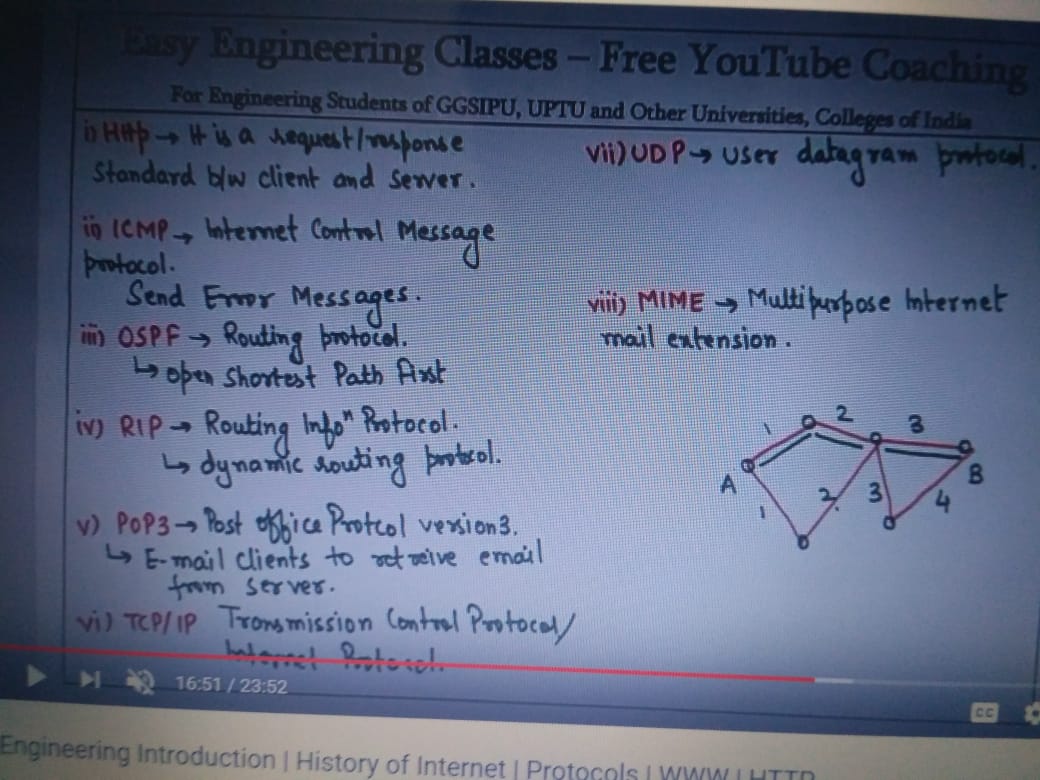 Easy Engineering Classes – Free YouTube Coaching
For Engineering Students of GGSIPU, UPTU and Other Universities, Colleges of India
i) Http → It is a request/response
Standard b/w client and Server.
ii) ICMP → Internet Control Message
protocol.
Send Error Messages.
iii) OSPF → Routing protocol.
↳ open Shortest Path First
iv) RIP → Routing Infoⁿ Protocol.
↳ dynamic routing protocol.
v) POP3 → Post office Protcol version3.
↳ E-mail clients to retreive email
from server.
vi) TCP/IP Transmission Control Protocol/
Internet Protocol.
vii) UDP → user datagram protocol.
viii) MIME → Multipurpose Internet
mail extension.
1 2 3
A B
1 2 3 4
16:51 / 23:52
CC
Engineering Introduction | History of Internet | Protocols | WWW | HTTP